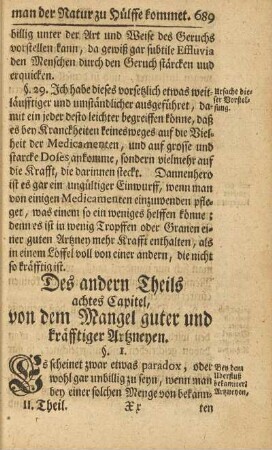 man der Natur zu Hülffe kommet. 689
billig unter der Art und Weise des Geruchs
vorstellen kann, da gewiß gar subtile Effluvia
den Menschen durch den Geruch stärcken und
erquicken.
§. 29. Ich habe dieses vorsetzlich etwas weit-
läufftiger und umständlicher ausgeführet, da-
mit ein jeder desto leichter begreiffen könne, daß
es bey Kranckheiten keinesweges auf die Viel-
heit der Medicamenten, und auf grosse und
starcke Doses ankomme, sondern vielmehr auf
die Krafft, die darinnen steckt. Dannenhero
ist es gar ein ungültiger Einwurff, wenn man
von einigen Medicamenten einzuwenden pfle-
get, was einem so ein weniges helffen könne:
denn es ist in wenig Tropffen oder Granen ei-
ner guten Artzney mehr Krafft enthalten, als
in einem Löffel voll von einer andern, die nicht
so kräfftig ist.
Ursache die-
ser Vorstel-
lung.
Des andern Theils
achtes Capitel,
von dem Mangel guter und
kräfftiger Artzneyen.
§. 1.
Es scheinet zwar etwas paradox, oder
wohl gar unbillig zu seyn, wenn man
bey einer solchen Menge von bekann-
Bey dem
Uberfluß
bekannter
Artzneyen,
II. Theil. Xx ten